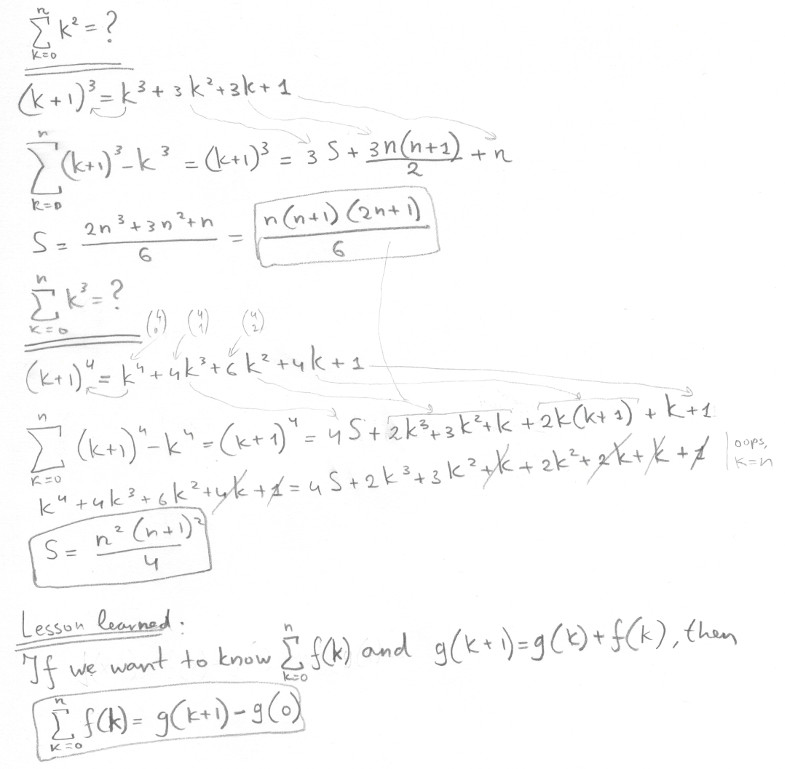 ∑_{k=0}^{n} k² = ?
(k+1)³ = k³ + 3k² + 3k + 1
∑_{k=0}^{n} (k+1)³ - k³ = (k+1)³ = 3S + 3n(n+1)/2 + n
S = (2n³+3n²+n)/6 = n(n+1)(2n+1)/6
∑_{k=0}^{n} k³ = ?
(4 0) (4 1) (4 2)
(k+1)⁴ = k⁴ + 4k³ + 6k² + 4k + 1
∑_{k=0}^{n} (k+1)⁴ - k⁴ = (k+1)⁴ = 4S + 2k³+3k²+k + 2k(k+1) + k+1
k⁴ + 4k³ + 6k² + 4k + 1 = 4S + 2k³ + 3k² + k + 2k² + 2k + k + 1 | oops, k=n
S = n²(n+1)²/4
Lesson learned:
If we want to know ∑_{k=0}^{n} f(k) and g(k+1)=g(k)+f(k), then
∑_{k=0}^{n} f(k) = g(k+1) - g(0)